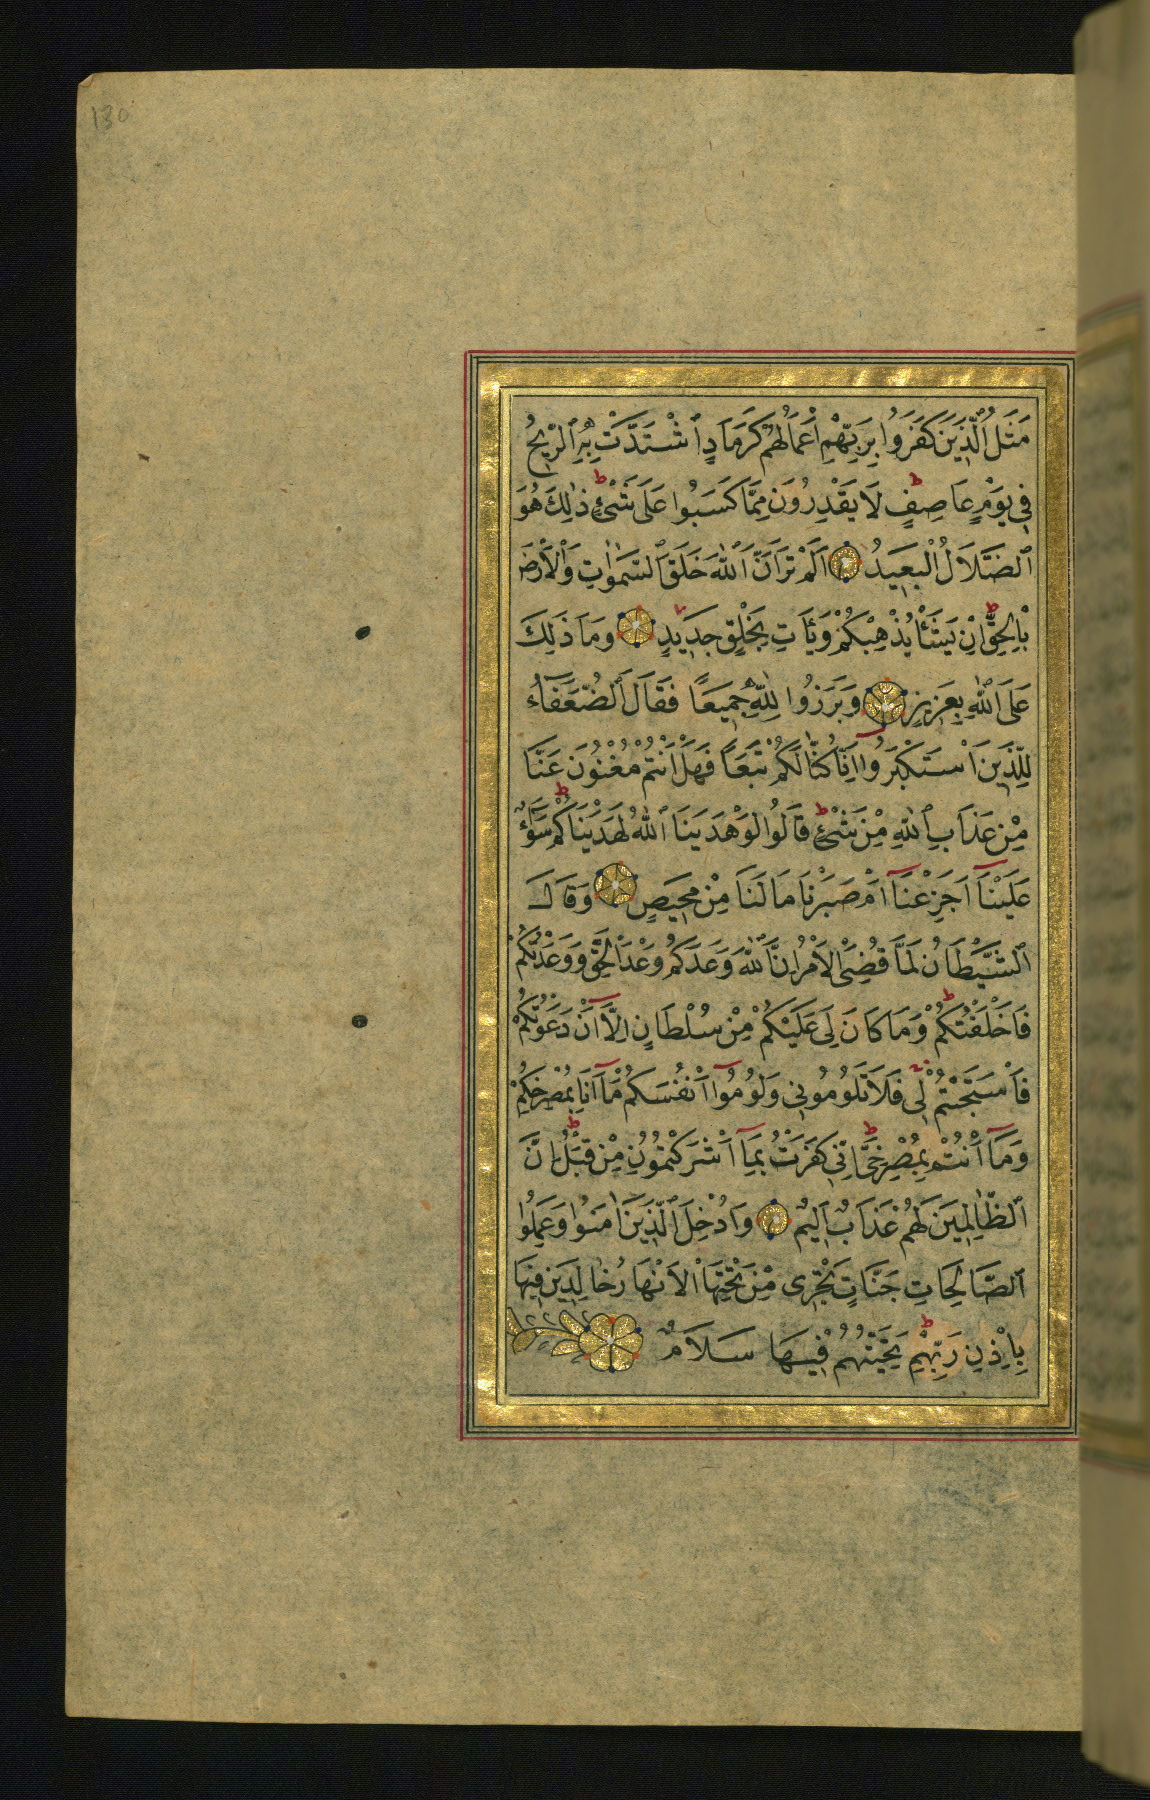 130
مَثَلُ الَّذِينَ كَفَرُوا بِرَبِّهِمْ اَعْمَالُهُمْ كَرَمَادٍ اشْتَدَّتْ بِهِ الرِّيحُ
فِي يَوْمٍ عَاصِفٍ ط لَا يَقْدِرُونَ مِمَّا كَسَبُوا عَلَى شَيْءٍ ط ذٰلِكَ هُوَ
الضَّلَالُ الْبَعِيدُ اَلَمْ تَرَ اَنَّ اللّٰهَ خَلَقَ السَّمٰوَاتِ وَالْاَرْضَ
بِالْحَقِّ ط اِنْ يَشَأْ يُذْهِبْكُمْ وَيَأْتِ بِخَلْقٍ جَدِيدٍ وَمَا ذَلِكَ
عَلَى اللّٰهِ بِعَزِيزٍ وَبَرَزُوا لِلّٰهِ جَمِيعًا فَقَالَ الضُّعَفَاءُ
لِلَّذِينَ اسْتَكْبَرُوا اِنَّا كُنَّا لَكُمْ تَبَعًا فَهَلْ اَنْتُمْ مُغْنُونَ عَنَّا
مِنْ عَذَابِ اللّٰهِ مِنْ شَيْءٍ ط قَالُوا لَوْ هَدَينَا اللّٰهُ لَهَدَيْنَاكُمْ ط سَوَاءٌ
عَلَيْنَا اَجَزِعْنَا اَمْ صَبَرْنَا مَا لَنَا مِنْ مَحِيصٍ وَقَالَ
الشَّيْطَانُ لَمَّا قُضِيَ الْاَمْرُ اِنَّ اللّٰهَ وَعَدَكُمْ وَعْدَ الْحَقِّ وَوَعَدْتُكُمْ
فَاَخْلَفْتُكُمْ ط وَمَا كَانَ لِيَ عَلَيْكُمْ مِنْ سُلْطَانٍ اِلَّا اَنْ دَعَوْتُكُمْ
فَاسْتَجَبْتُمْ لِي فَلَا تَلُومُونِي وَلُومُوا اَنْفُسَكُمْ مَا اَنَا بِمُصْرِخِكُمْ
وَمَا اَنْتُمْ بِمُصْرِخِيَّ ط اِنِّي كَفَرْتُ بِمَا اَشْرَكْتُمُونِ مِنْ قَبْلُ ط اِنَّ
الظَّالِمِينَ لَهُمْ عَذَابٌ اَلِيمٌ وَاُدْخِلَ الَّذِينَ اٰمَنُوا وَعَمِلُوا
الصَّالِحَاتِ جَنَّاتٍ تَجْرِي مِنْ تَحْتِهَا الْاَنْهَارُ خَالِدِينَ فِيهَا
بِاِذْنِ رَبِّهِمْ ط تَحِيَّتُهُمْ فِيهَا سَلَامٌ